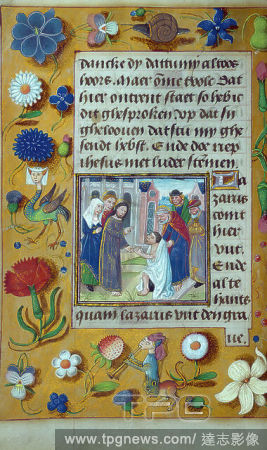 dancke dy dattu my altoos
hoors. Maer om tvolc dat
hier ontrent staet so hebic
dit ghesproken op dat si
ghelooven dattu my ghe
sendt hebst. Ende doe riep
ihesus met luder stemen
Lazarus
comt
hier
vut.
Ende
alte
hants
quam lazarus vut den gra
ve.
TPG
www.tpgnews.com/ 達志影像